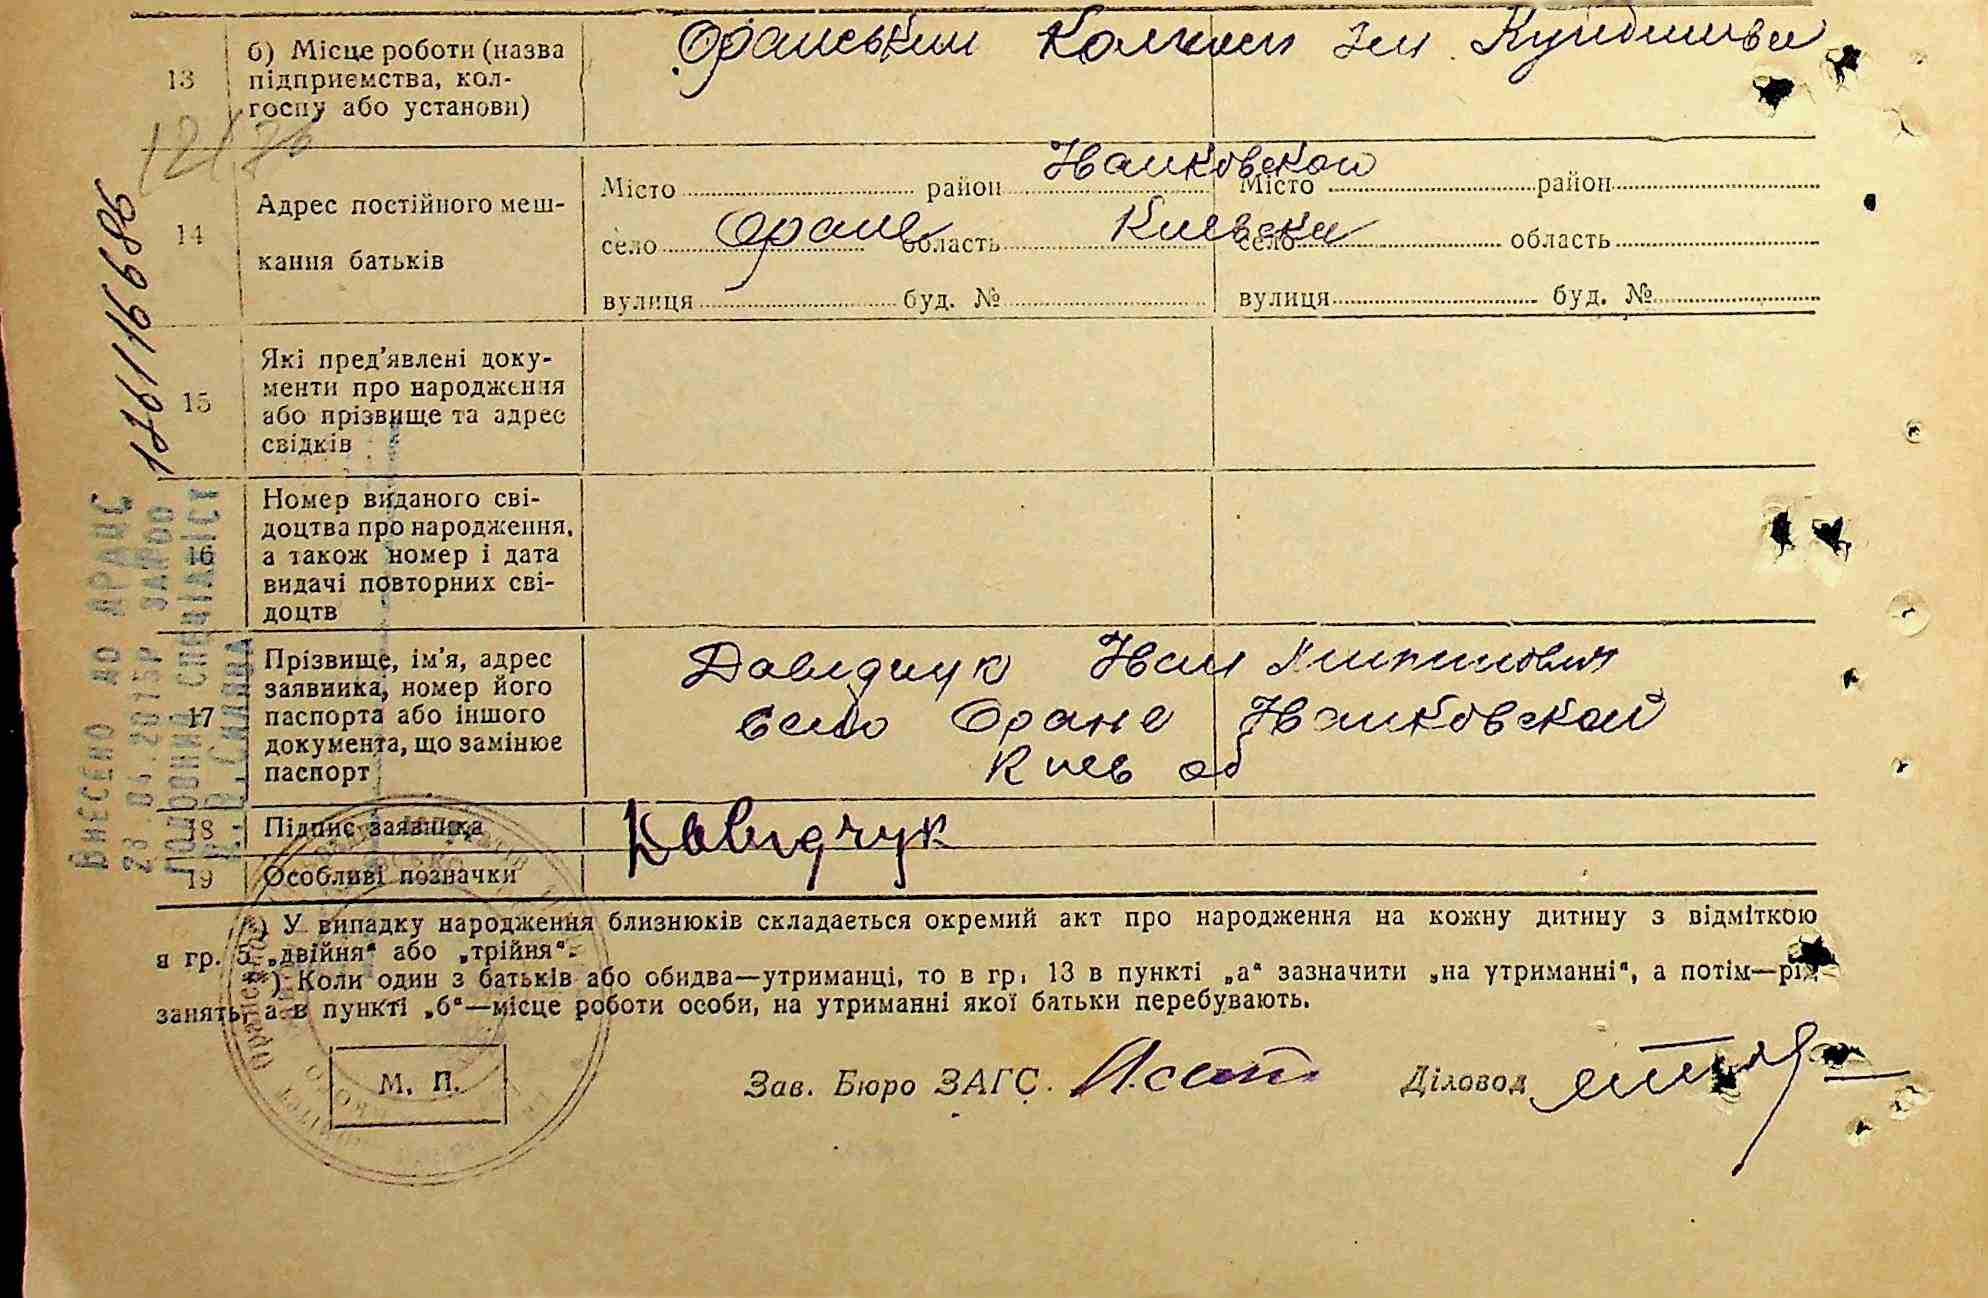 13
б) Місце роботи (назва
підприємства, кол-
госпу або установи)
Оранський Колхоз Им
12/76
14
Адрес постійного меш-
кання батьків
Місто район Иванковской
село Оране область Киевска
вулиця буд. №
Місто район
село область
вулиця буд. №
15
Які пред’явлені доку-
менти про народження
або прізвище та адрес
свідків
16
Номер виданого сві-
доцтва про народження,
а також номер і дата
видачі повторних сві-
доцтв
17
Прізвище, ім’я, адрес
заявника, номер його
паспорта або іншого
документа, що замінює
паспорт
Давидчук Иван
село Оране Иванковской
Киев об
18
Підпис заявника
Давидчук
19
Особливі позначки
*) У випадку народження близнюків складається окремий акт про народження на кожну дитину з відміткою
в гр. 5 „двійня“ або „трійня“.
*) Коли один з батьків або обидва—утриманці, то в гр. 13 в пункті „а“ зазначити „на утриманні“, а потім—рід
занять, а в пункті „б“—місце роботи особи, на утриманні якої батьки перебувають.
М. П.
Зав. Бюро ЗАГС
Діловод
Внесено до ДРАЦС
23.04.2015р
Головний спеціаліст